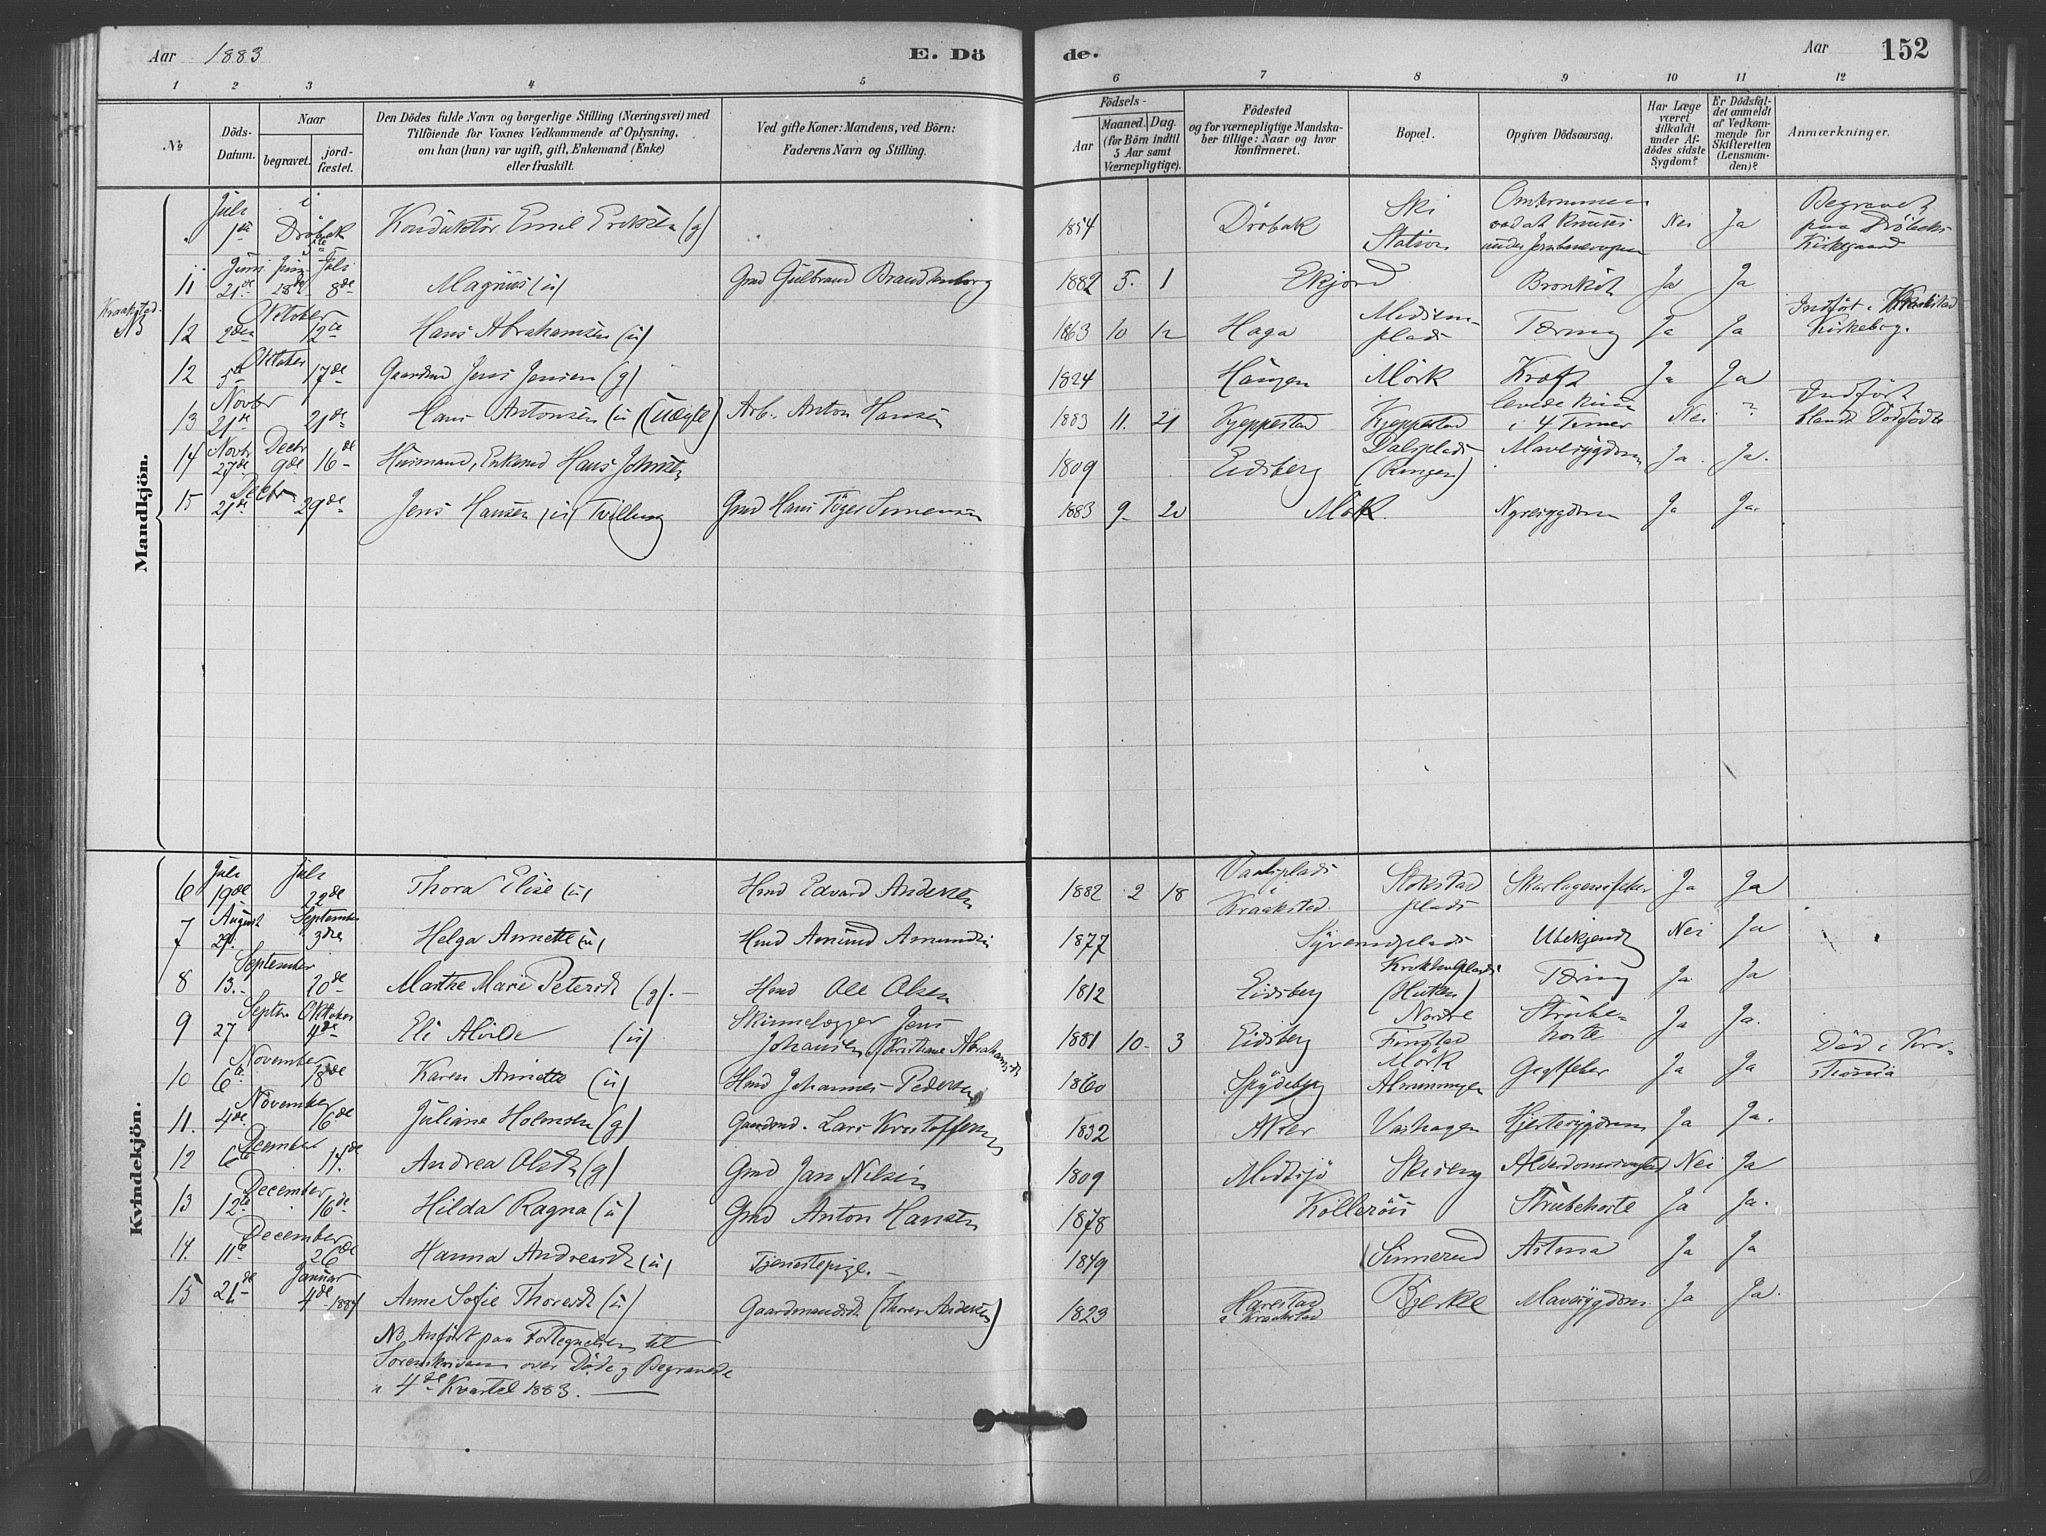 Aar 1883 E. Dö
1 2 3 4 5
№
Döds-Datum.
Naar
begravet.
jord-fæstet.
Den Dödes fulde Navn og borgerlige Stilling (Næringsvei) med
Tilföiende for Voxnes Vedkommende af Oplysning,
om han (hun) var ugift, gift, Enkemand (Enke)
eller fraskilt.
Ved gifte Koner: Mandens, ved Börn:
Faderens Navn og Stilling.
de. Aar 152
6 7 8 9 10 11 12
Födsels-
Aar
Maaned. Dag.
(for Börn indtil
5 Aar samt
Værnepligtige).
Födested
og for værnepligtige Mandska-
ber tillige: Naar og hvor
konfirmeret.
Bopæl.
Opgiven Dödsaarsag.
Har Læge
været
tilkaldt
under Af-
dödes sidste
Sygdom?
Er Dödsfal-
det anmeldt
af Vedkom-
mende for
Skifteretten
(Lensman-
den)?
Anmærkninger.
Mandkjön.
Juli i Drøbak Konduktør Emil Eriksen (g) 1854 Drøbak Ski Station Omkommen under Jernbanevogn Nei Ja Begravet paa Drøbaks Kirkegaard
11 Juni 21de Juni 28de Juli 8de Magnus (u) Gmd Gulbrand Brandenborg 1882 5. 1 Ekjord Bronkit Ja Ja
Kraakstad NB 12 Oktober 2den 12te Hans Abrahamsen (u) 1863 10 12 Haga plads Tæring Ja Ja Indført i Kraakstad Kirkebog.
12 Oktober 5te 17de Gaardmd Jens Jensen (g) 1824 Haugen Mörk Kræft Ja Ja
13 Novbr 21de 21de Hans Antonsen (u) (Uægte) Arb. Anton Hansen 1883 11. 21 Kjeppestad Kjeppestad levede kun i 4 Timer Nei ? Indført blandt Dødfødte
14 Novbr 27de Decbr 9de 16de Husmand, Enkemd Hans Johnsen 1809 Eidsberg Dalsplads (Rangen) Mavesygdom Ja. Ja.
15 Decbr 21de 29de Jens Hansen (u) Tvilling Gmd Hans Simensen 1883 9 20 Mörk. Ja Ja.
Kvindekjön.
6 Juli 19de Juli 22de Thora Elise (u) Hmd Edvard Andersen 1882 2 18 i Kraakstad. Stokstad plads Skarlagensfeber Ja Ja
7 August 29. September 3die Helga Annette (u) Hmd Amund Amundsen 1877 Ubekjendt Nei Ja
8 September 13. 20de Marthe Marie Petersdt (g). Hmd Ole Olsen 1812 Eidsberg (Hutten) Tæring Ja Ja
9 Septbr. 27 Oktober 4de Eli Alvilde (u) Skinnelægger Jens Johansen, Kristiane Abrahamsdt 1881 10 3 Eidsberg Nordre Finstad Strubehoste Ja Ja.
10 November 6te 18de Karen Annette (u) Hmd Johannes Pedersen 1860 Spydeberg Mörk Almuningen Gigtfeber Ja Ja Död i Kristiania
11. November 4de 16de Juliane Holmsen (g) Gaardmd. Lars Kristoffersen 1832 Aker Vashagen Hjertesygdom Ja Ja.
12 December 6te 17de Andrea Olsdt (g) Gmd Jan Nilsen 1809 Midtsjö Skiveng Alderdomssvaghed Nei Ja
13 December 12te 16de Hilda Ragna (u) Gmd Anton Hansen 1878 Kolleröis Strubehoste Ja Ja.
14. December 11te 26de Hanna Andreasdt (u) Tjenestepige. 1849 Sinnerud Astma Ja Ja
15 21de Januar 4de 1884 Anne Sofie Thoresdt (u) Gaardmandsdt. (Thore Andersen) 1823 Harestad i Kraakstad Bjerke Mavesygdom. Ja Ja.
NB Anført paa Fortegnelsen til
Sorenskriveren over Døde og Begravede
i 4de Kvartal 1883.